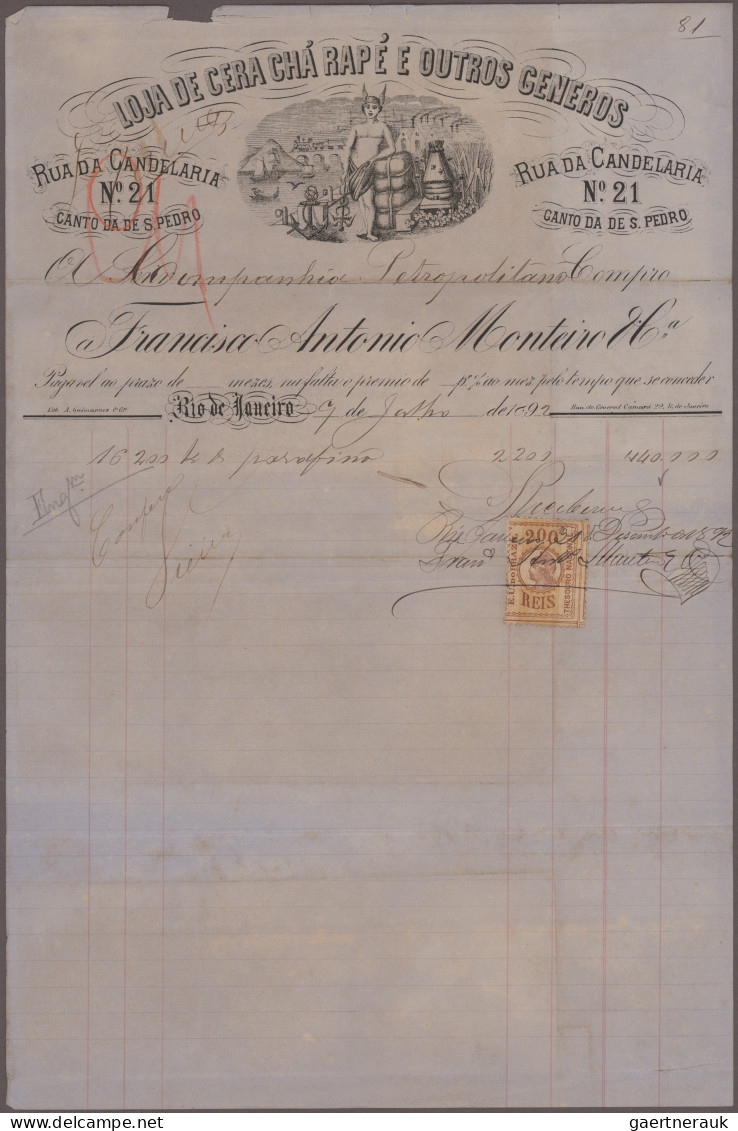 81
LOJA DE CERA CHÁ RAPÉ E OUTROS GENEROS
RUA DA CANDELARIA
Nº 21
CANTO DA DE S. PEDRO
RUA DA CANDELARIA
Nº 21
CANTO DA DE S. PEDRO
A Companhia Petropolitana Compro
a Francisco Antonio Monteiro & Cª
Pagavel ao prazo de mezes, na falta o premio de p% ao mez pelo tempo que se conceder
Lith. A. Guimaraes & Cª
Rio de Janeiro 7 de Julho de 1892
Rua do General Camara 22, R. de Janeiro
16 200 parafina 2200 440.000
Recebemos
Rio Janeiro 31 Dezembro 1892
Franco Anto Monteiro & Cª
Confere
Vieira
E.U. DO BRAZIL
200
REIS
THESOURO NACIONAL
gaertnerauk